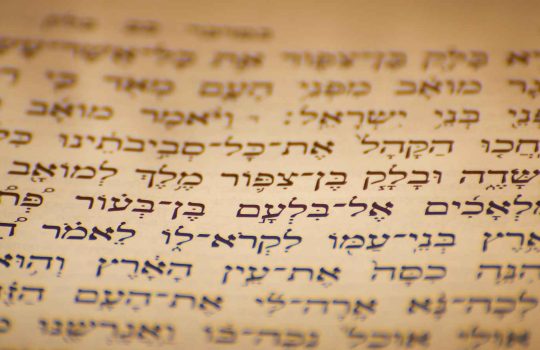 בָּלָק בֶּן־צִפּוֹר אֵת כָּל־אֲשֶׁר־עָשׂ
גָר מוֹאָב מִפְּנֵי הָעָם מְאֹד כִּי ר
פְּנֵי בְּנֵי יִשְׂרָאֵל: וַיֹּאמֶר מוֹאָב
חֲכוּ הַקָּהָל אֶת־כָּל־סְבִיבֹתֵינוּ כִּל
שָּׂדֶה וּבָלָק בֶּן־צִפּוֹר מֶלֶךְ לְמוֹאָב
לְאָכִים אֶל־בִּלְעָם בֶּן־בְּעוֹר פְּת
אֶרֶץ בְּנֵי־עַמּוֹ לִקְרֹא־לוֹ לֵאמֹר ה
הִנֵּה כִסָּה אֶת־עֵין הָאָרֶץ וְהוּא
לְכָה־נָּא אָרָה־לִּי אֶת־הָעָם הַזֶּה
אוּלַי אוּכַל נַכֶּה־בּוֹ וַאֲגָרְשֶׁנּוּ